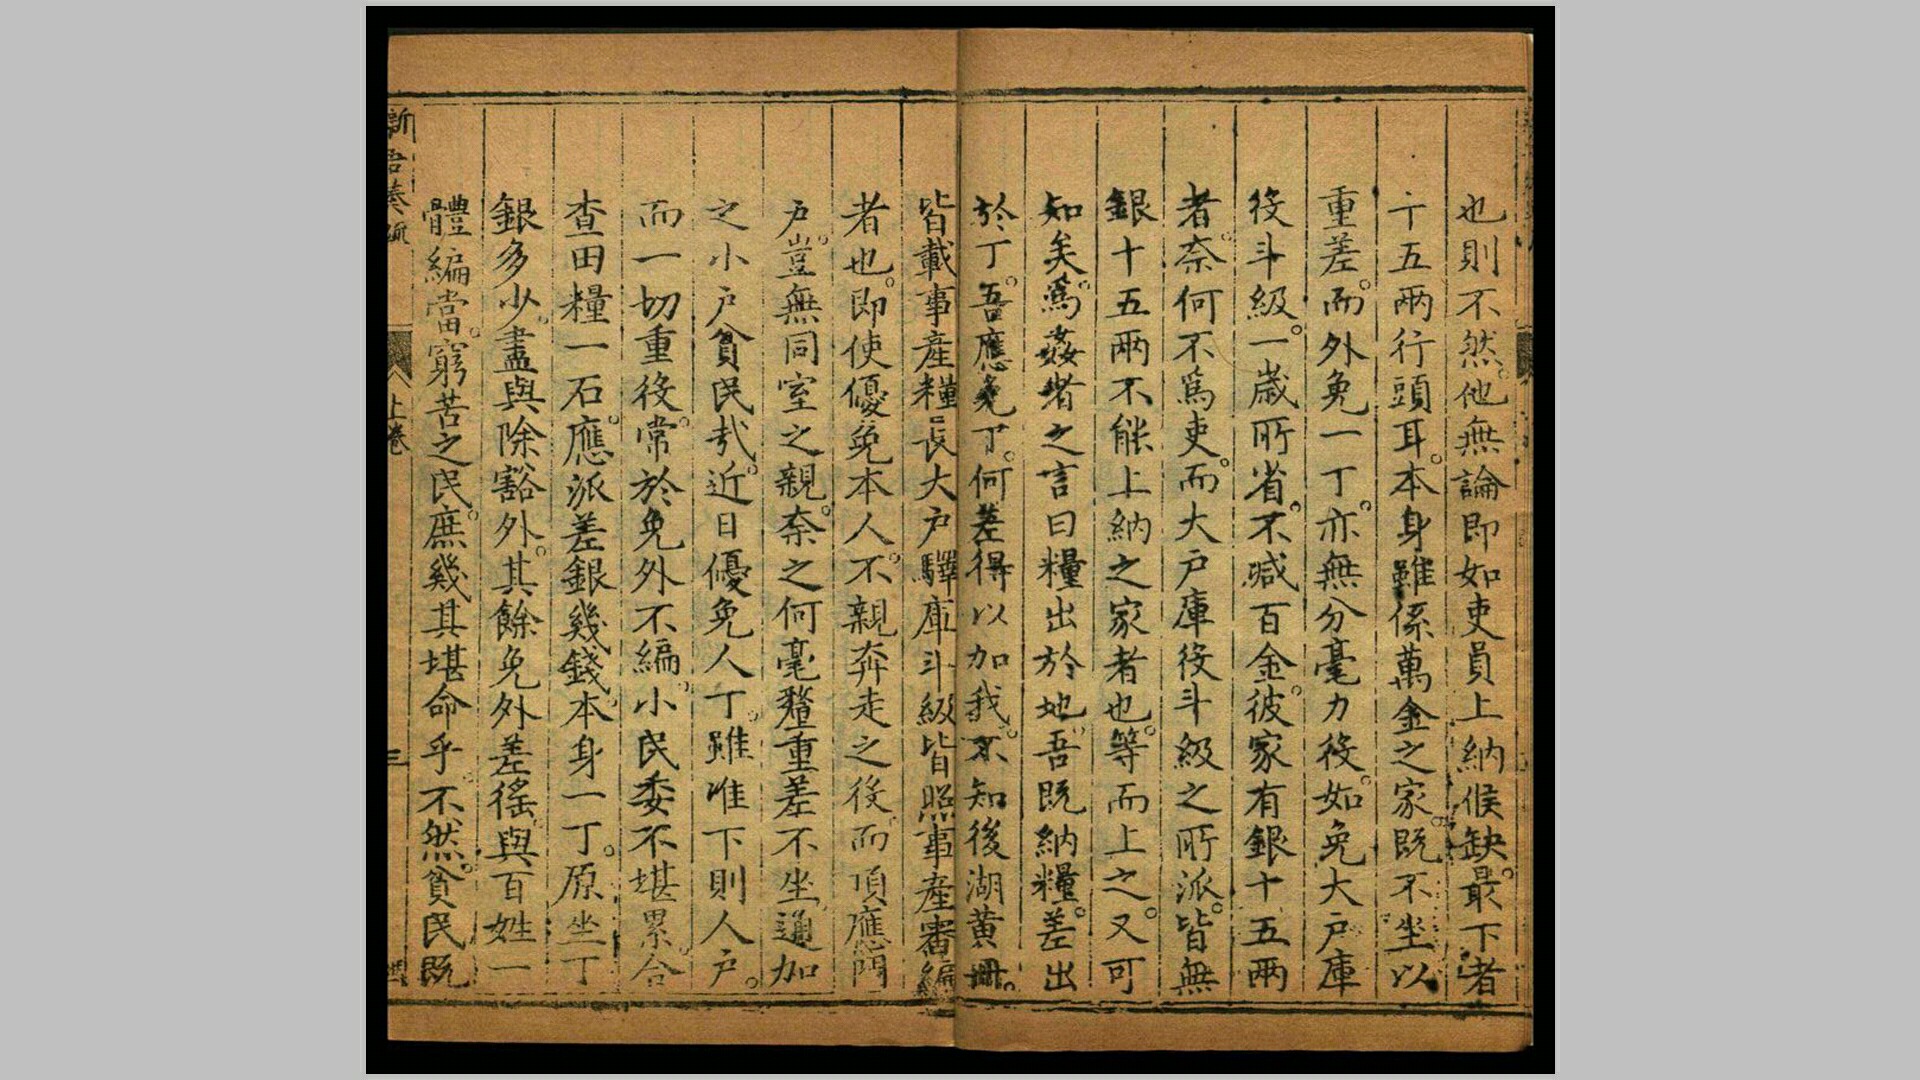 也則不然他無論即如吏員上納候缺最下者
十五兩行頭耳本身雖係萬金之家既不坐以
重差而外免一丁亦無分毫力役如免大户庫
役斗級一歲所省不減百金彼家有銀十五兩
者奈何不爲吏而大户庫役斗級之所派皆無
銀十五兩不能上納之家者也等而上之又可
知矣爲姦者之言曰糧出於地吾既納糧差出
於丁吾應免丁何差得以加我不知後湖黄冊
皆載事産糧長大户驛庫斗級皆照事産審編
者也即使優免本人不親奔走之役而頂應門
户豈無同室之親奈之何毫釐重差不坐通加
之小户貧民哉近日優免人丁雖唯下則人户
而一切重役常於免外不編小民委不堪累合
查田糧一石應派差銀幾錢本身一丁原坐丁
銀多少盡與除豁外其餘免外差徭與百姓一
體編當窮苦之民庶幾其堪命乎不然貧民既
新吾奏疏 上卷 三